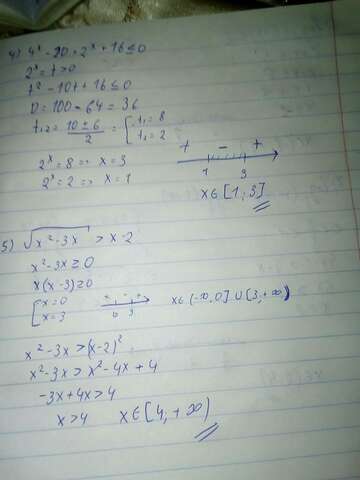 4) 4ˣ - 20 · 2ˣ + 16 ≤ 0
2ˣ = t > 0
t² - 10t + 16 ≤ 0
D = 100 - 64 = 36
t₁,₂ = (10 ± 6)/2 = [ t₁ = 8
t₁ = 2
2ˣ = 8 => x = 3
2ˣ = 2 => x = 1
+ - +
1 3
x ∈ [1; 3]
5) √(x² - 3x) > x - 2
x² - 3x ≥ 0
x(x - 3) ≥ 0
[ x = 0
x = 3
+ - +
0 3
x ∈ (-∞, 0] ∪ [3, +∞)
x² - 3x > (x - 2)²
x² - 3x > x² - 4x + 4
-3x + 4x > 4
x > 4 x ∈ [4, +∞)